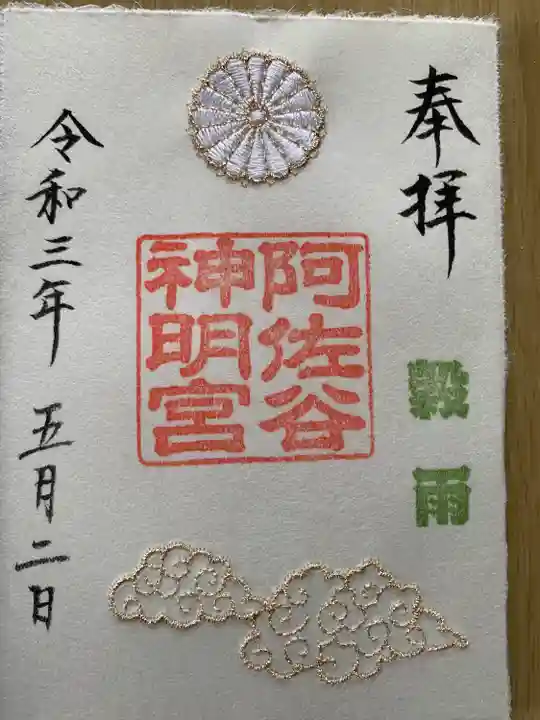 奉拝
穀雨
阿佐谷
神明宮
令和三年 五月二日